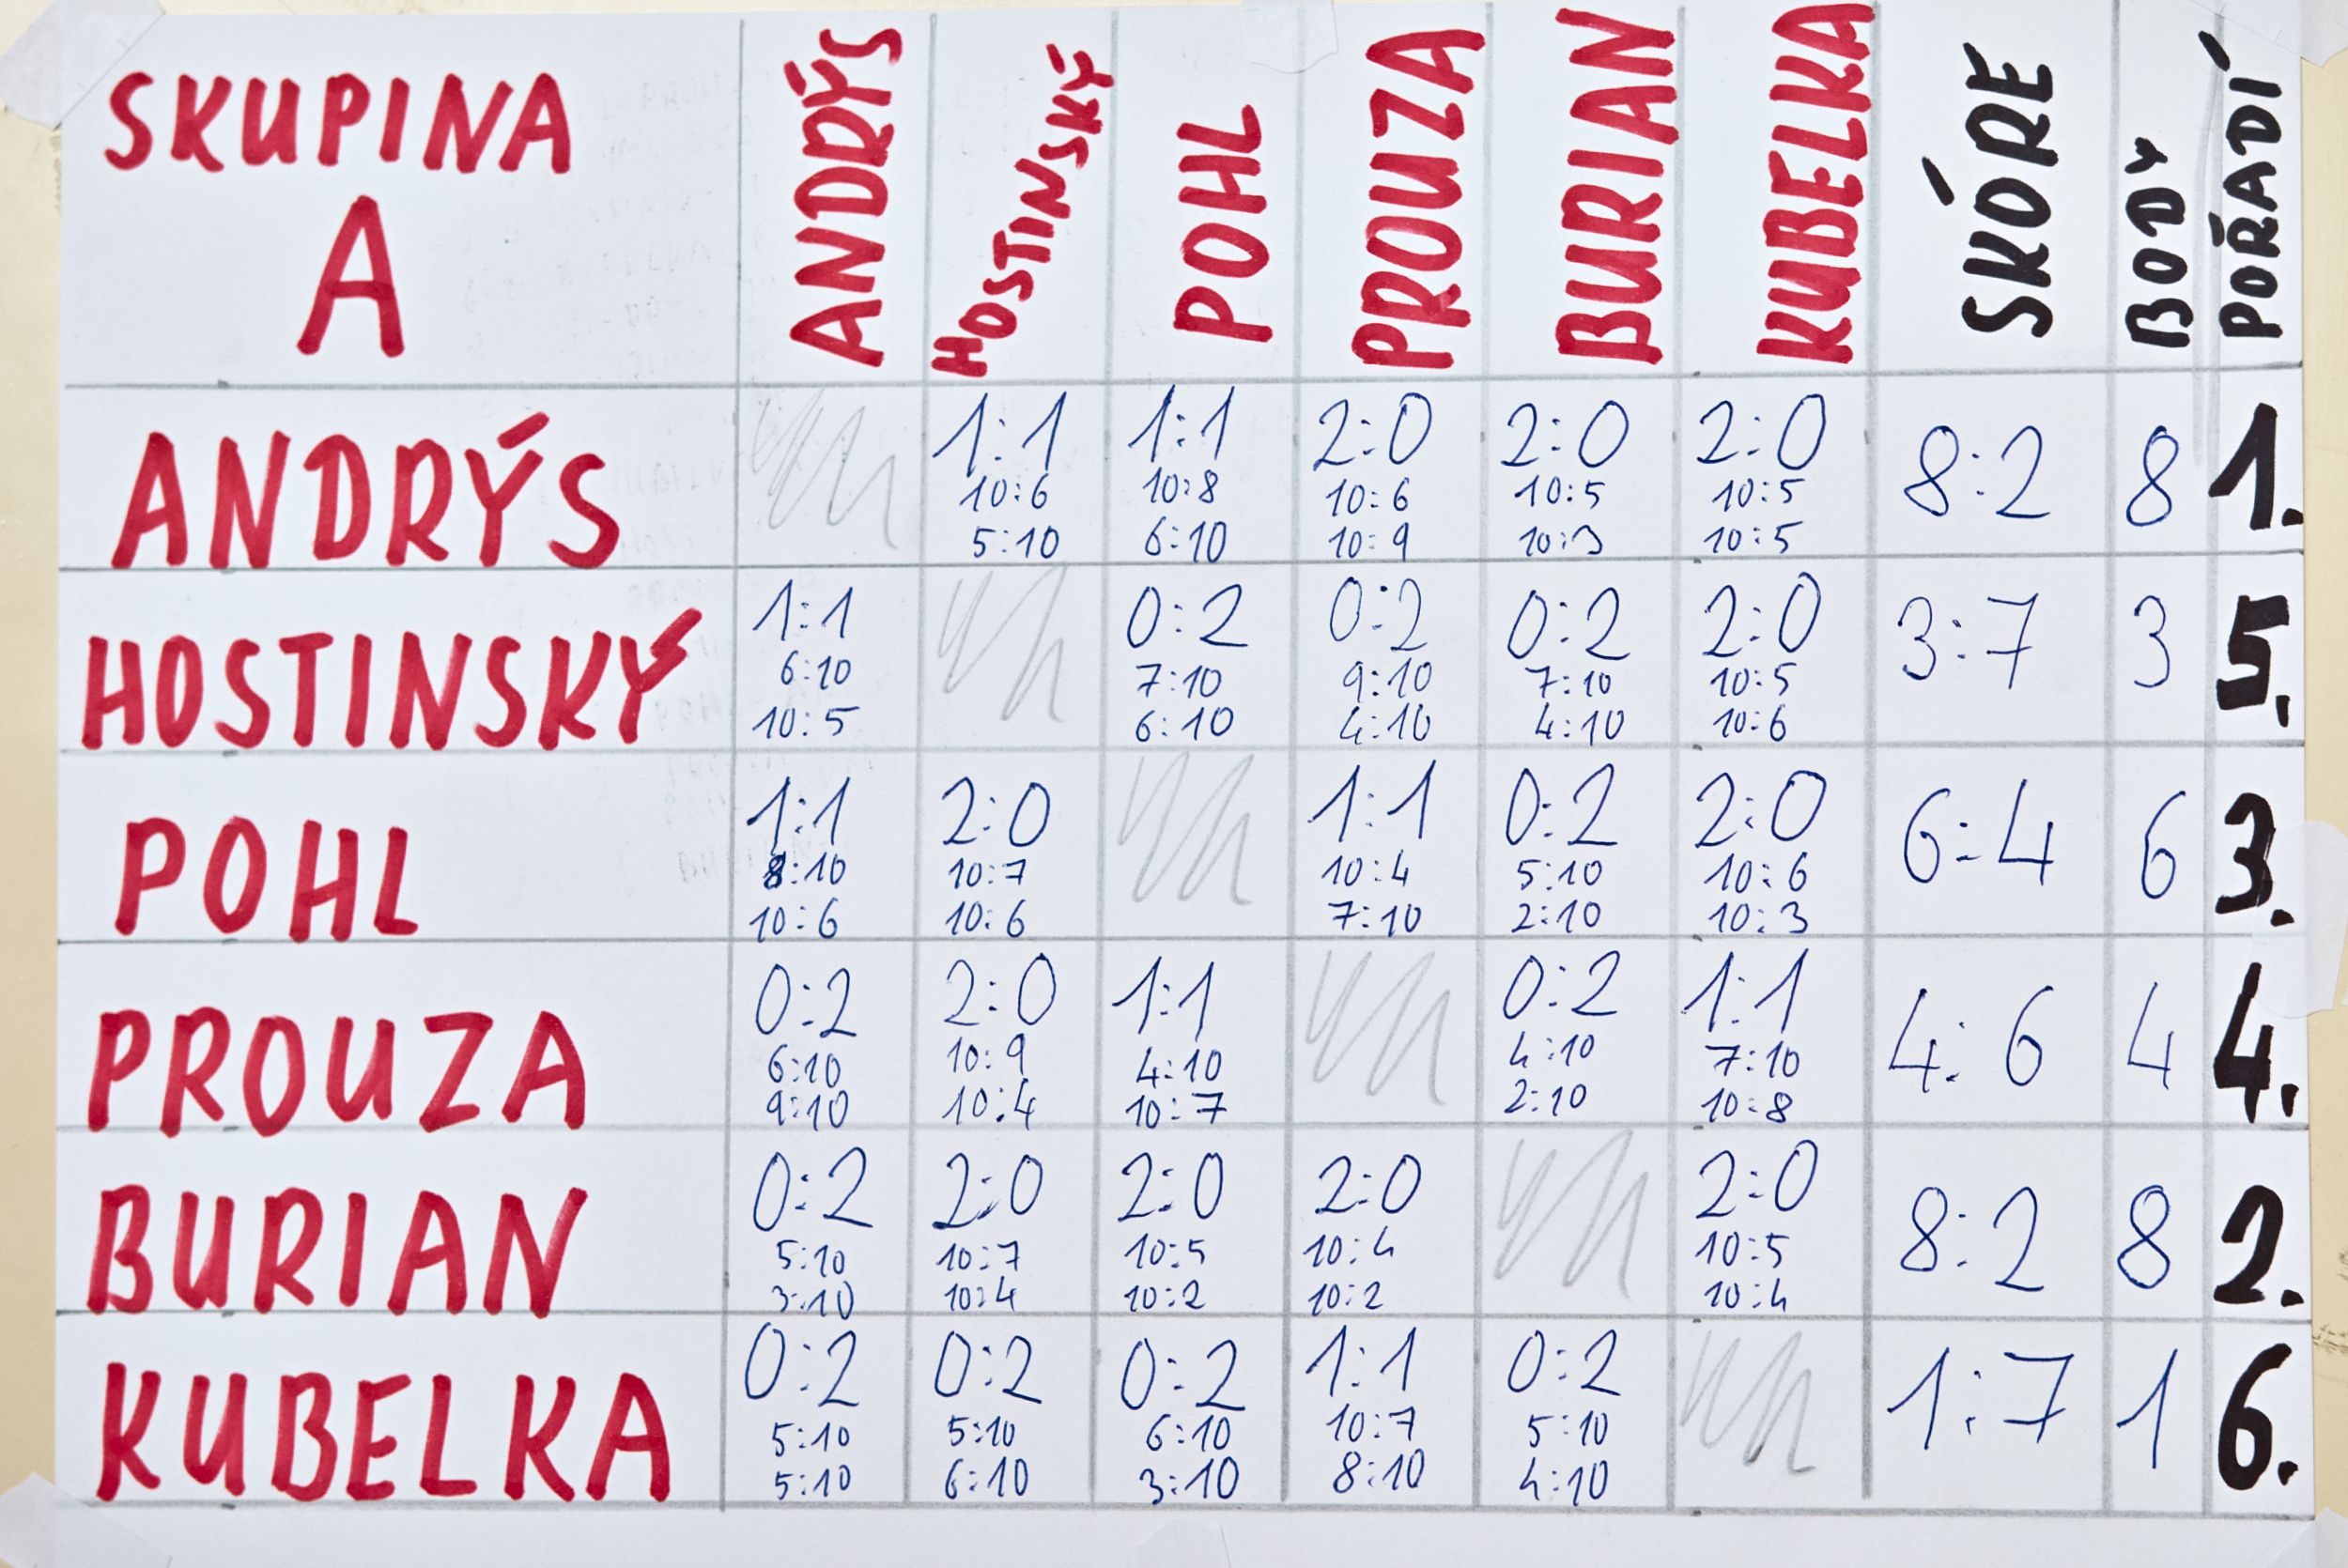 SKUPINA A ANDRÝS HOSTINSKÝ POHL PROUZA BURIAN KUBELKA SKÓRE BODY POŘADÍ
ANDRÝS 1:1 1:1 2:0 2:0 2:0 8:2 8 1.
10:6 10:8 10:6 10:5 10:5
5:10 6:10 10:9 10:3 10:5
HOSTINSKÝ 1:1 0:2 0:2 0:2 2:0 3:7 3 5.
6:10 7:10 9:10 7:10 10:5
10:5 6:10 4:10 4:10 10:6
POHL 1:1 2:0 1:1 0:2 2:0 6:4 6 3.
8:10 10:7 10:4 5:10 10:6
10:6 10:6 7:10 2:10 10:3
PROUZA 0:2 2:0 1:1 0:2 1:1 4:6 4 4.
6:10 10:9 4:10 4:10 7:10
9:10 10:4 10:7 2:10 10:8
BURIAN 0:2 2:0 2:0 2:0 2:0 8:2 8 2.
5:10 10:7 10:5 10:4 10:5
3:10 10:4 10:2 10:2 10:4
KUBELKA 0:2 0:2 0:2 1:1 0:2 1:7 1 6.
5:10 5:10 6:10 10:7 5:10
5:10 6:10 3:10 8:10 4:10